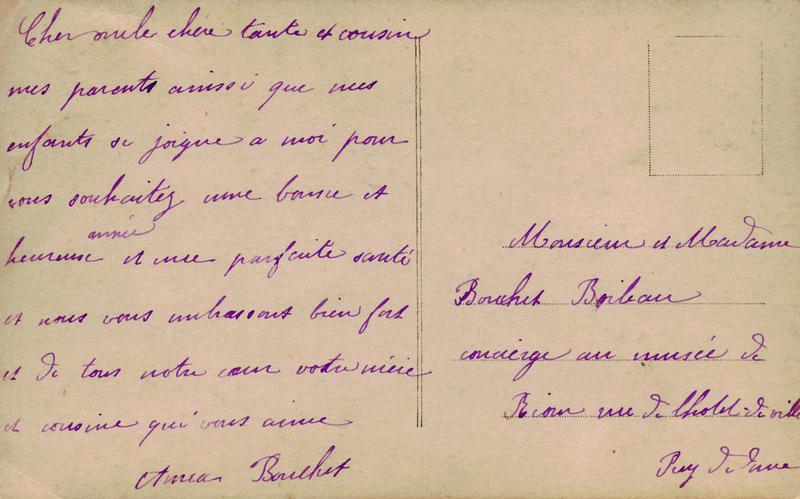 Cher oncle chère tante et cousin
mes parents ainssi que mes
enfants se joigne a moi pour
vous souhaitez une bonne et
année
heureuse et une parfaite santé
et nous vous embrassont bien fort
et de tous notre cœur votre nièce
et cousine qui vous aime
Bouchet
Monsieur et Madame
Bouchet Boileau
concierge au musée de
Riom rue de l'hotel-de-ville
Puy de dome